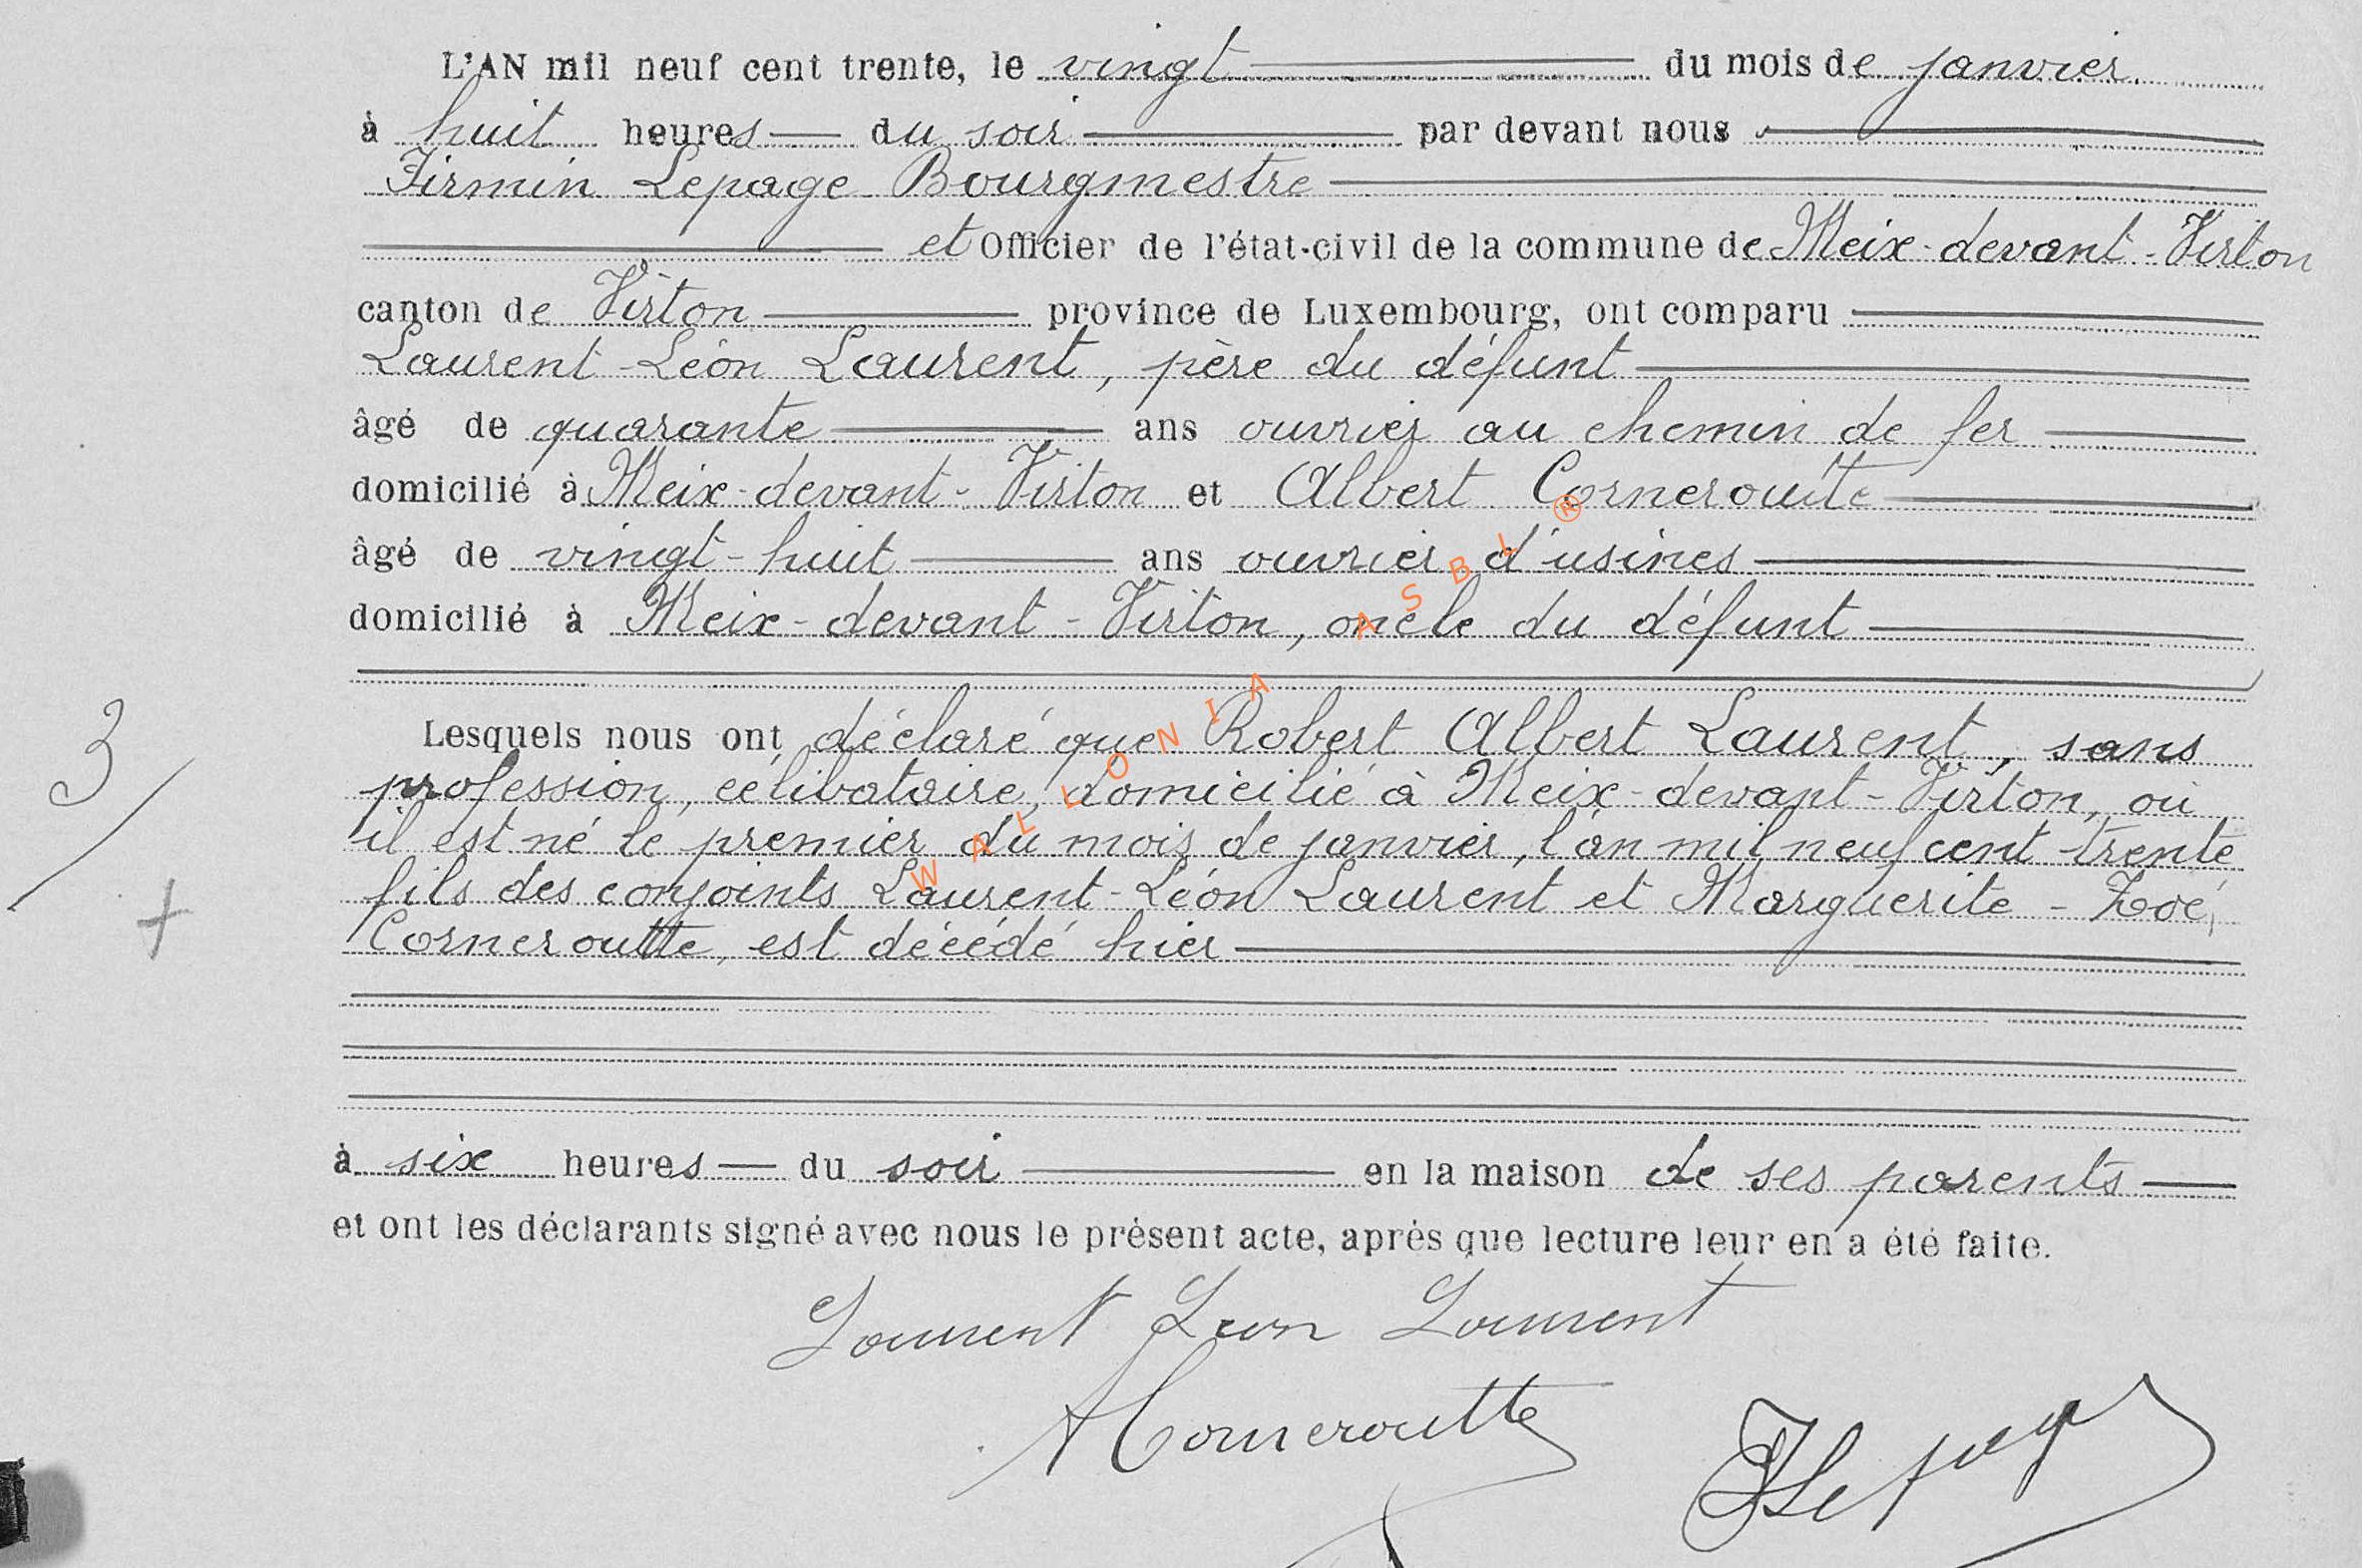 L'AN mil neuf cent trente, le vingt du mois de janvier
à huit heures du soir par devant nous
Firmin Lepage Bourgmestre
et Officier de l'état-civil de la commune de Meix-devant-Virton
canton de Virton province de Luxembourg, ont comparu
Laurent-Léon Laurent, père du défunt
âgé de quarante ans ouvrier au chemin de fer
domicilié à Meix-devant-Virton et Albert Corneroutte
âgé de vingt-huit ans ouvrier d'usines
domicilié à Meix-devant-Virton, oncle du défunt
3/
Lesquels nous ont déclaré que Robert Albert Laurent, sans
profession, célibataire, domicilié à Meix-devant-Virton, où
il est né le premier du mois de janvier, l'an mil neuf cent trente
fils des conjoints Laurent-Léon Laurent et Marguerite-Zoé,
+
Corneroutte, est décédé hier
à six heures du soir en la maison de ses parents
et ont les déclarants signé avec nous le présent acte, après que lecture leur en a été faite.
Laurent Leon Laurent
A Corneroutte
F Lepage
WALLONIA ASBL ®